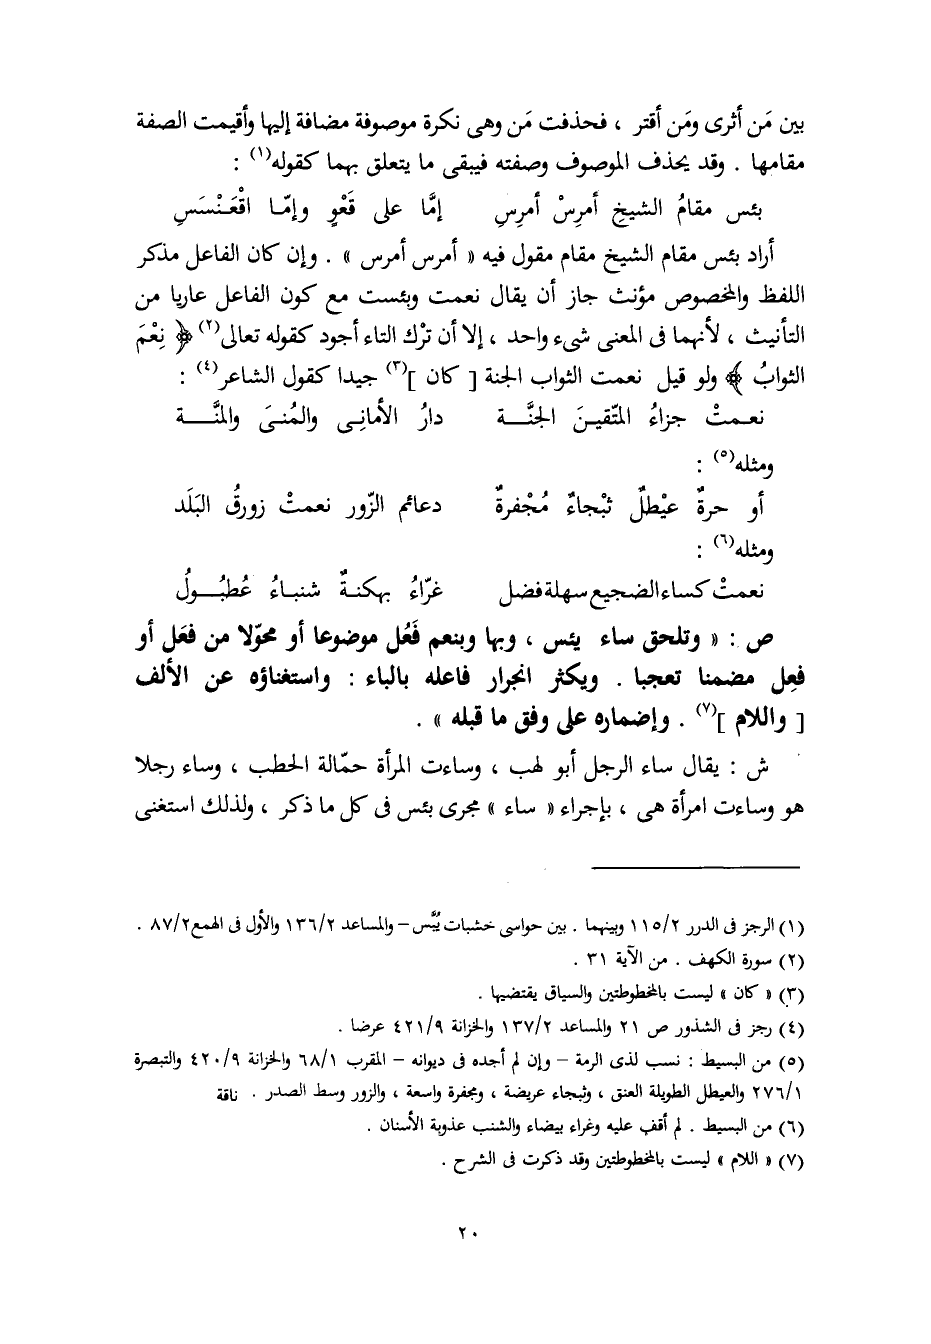 بين مَن أثرى ومَن أقتر ، فحذفت مَن وهى نكرة موصوفة مضافة إليها وأقيمت الصفة
مقامها . وقد يحذف الموصوف وصفته فيبقى ما يتعلق بهما كقوله(١) :
بئس مقامُ الشيخِ أمرِسْ أمرِسِ إمَّا على قَعْوٍ وإمّـا اقْعَنْسَسِ
أراد بئس مقام الشيخ مقام مقول فيه « أمرس أمرس » . وإن كان الفاعل مذكر
اللفظ والمخصوص مؤنث جاز أن يقال نعمت وبئست مع كون الفاعل عاريا من
التأنيث ، لأنهما فى المعنى شىء واحد ، إلا أن ترْك التاء أجود كقوله تعالى(٢) ﴿ نِعْمَ
الثوابُ ﴾ ولو قيل نعمت الثواب الجنة [ كان ](٣) جيدا كقول الشاعر(٤) :
نعـمتْ جزاءُ المتّقيـنَ الجنَّـــة دارُ الأمانِـى والمُنـىَ والمنَّــــة
ومثله(٥) :
أو حرةٌ عيْطلٌ ثبْجاءٌ مُجْفرةٌ دعائم الزّور نعمتْ زورقُ البَلَد
ومثله(٦) :
نعمتْ كساء الضجيع سهلة فضل غرّاءُ بهكنـةٌ شنبـاءُ عُطبُـــولُ
ص : « وتلحق ساء بئس ، وبها وبنعم فَعُل موضوعا أو محوّلا من فعَل أو
فعِل مضمنا تعجبا . ويكثر انجرار فاعله بالباء : واستغناؤه عن الألف
[ واللام ](٧) . وإضماره على وفق ما قبله » .
ش : يقال ساء الرجل أبو لهب ، وساءت المرأة حمّالة الحطب ، وساء رجلا
هو وساءت امرأة هى ، بإجراء « ساء » مجرى بئس فى كل ما ذكر ، ولذلك استغنى
(١) الرجز فى الدرر ١١٥/٢ وبينهما . بين حواسى خشبات يُبَّس – والمساعد ١٣٦/٢ والأول فى الهمع٨٧/٢ .
(٢) سورة الكهف . من الآية ٣١ .
(٣) « كان » ليست بالمخطوطتين والسياق يقتضيها .
(٤) رجز فى الشذور ص ٢١ والمساعد ١٣٧/٢ والخزانة ٤٢١/٩ عرضا .
(٥) من البسيط : نسب لذى الرمة – وإن لم أجده فى ديوانه – المقرب ٦٨/١ والخزانة ٤٢٠/٩ والتبصرة
٢٧٦/١ والعيطل الطويلة العنق ، وثبجاء عريضة ، ومجفرة واسعة ، والزور وسط الصدر . ناقة
(٦) من البسيط . لم أقف عليه وغراء بيضاء والشنب عذوبة الأسنان .
(٧) « اللام » ليست بالمخطوطتين وقد ذكرت فى الشرح .
٢٠